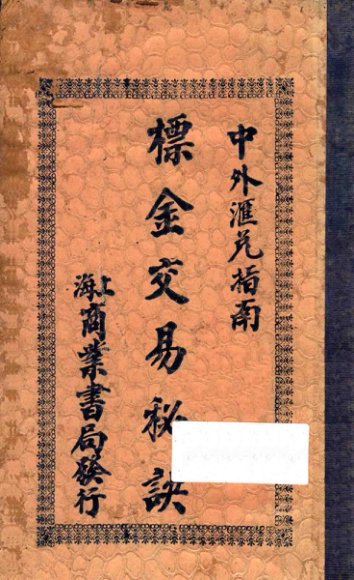 中外滙兑指南
標金交易秘訣
上海商業書局發行